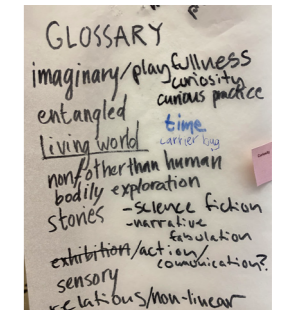 GLOSSARY
imaginary/playfullness
curiosity
curious practice
entangled
time
carrier bag
living world
non/other than human
bodily exploration
stories
-science fiction
-narrative
fabulation
exhibition/action/
communication?
sensory
relations/non-linear